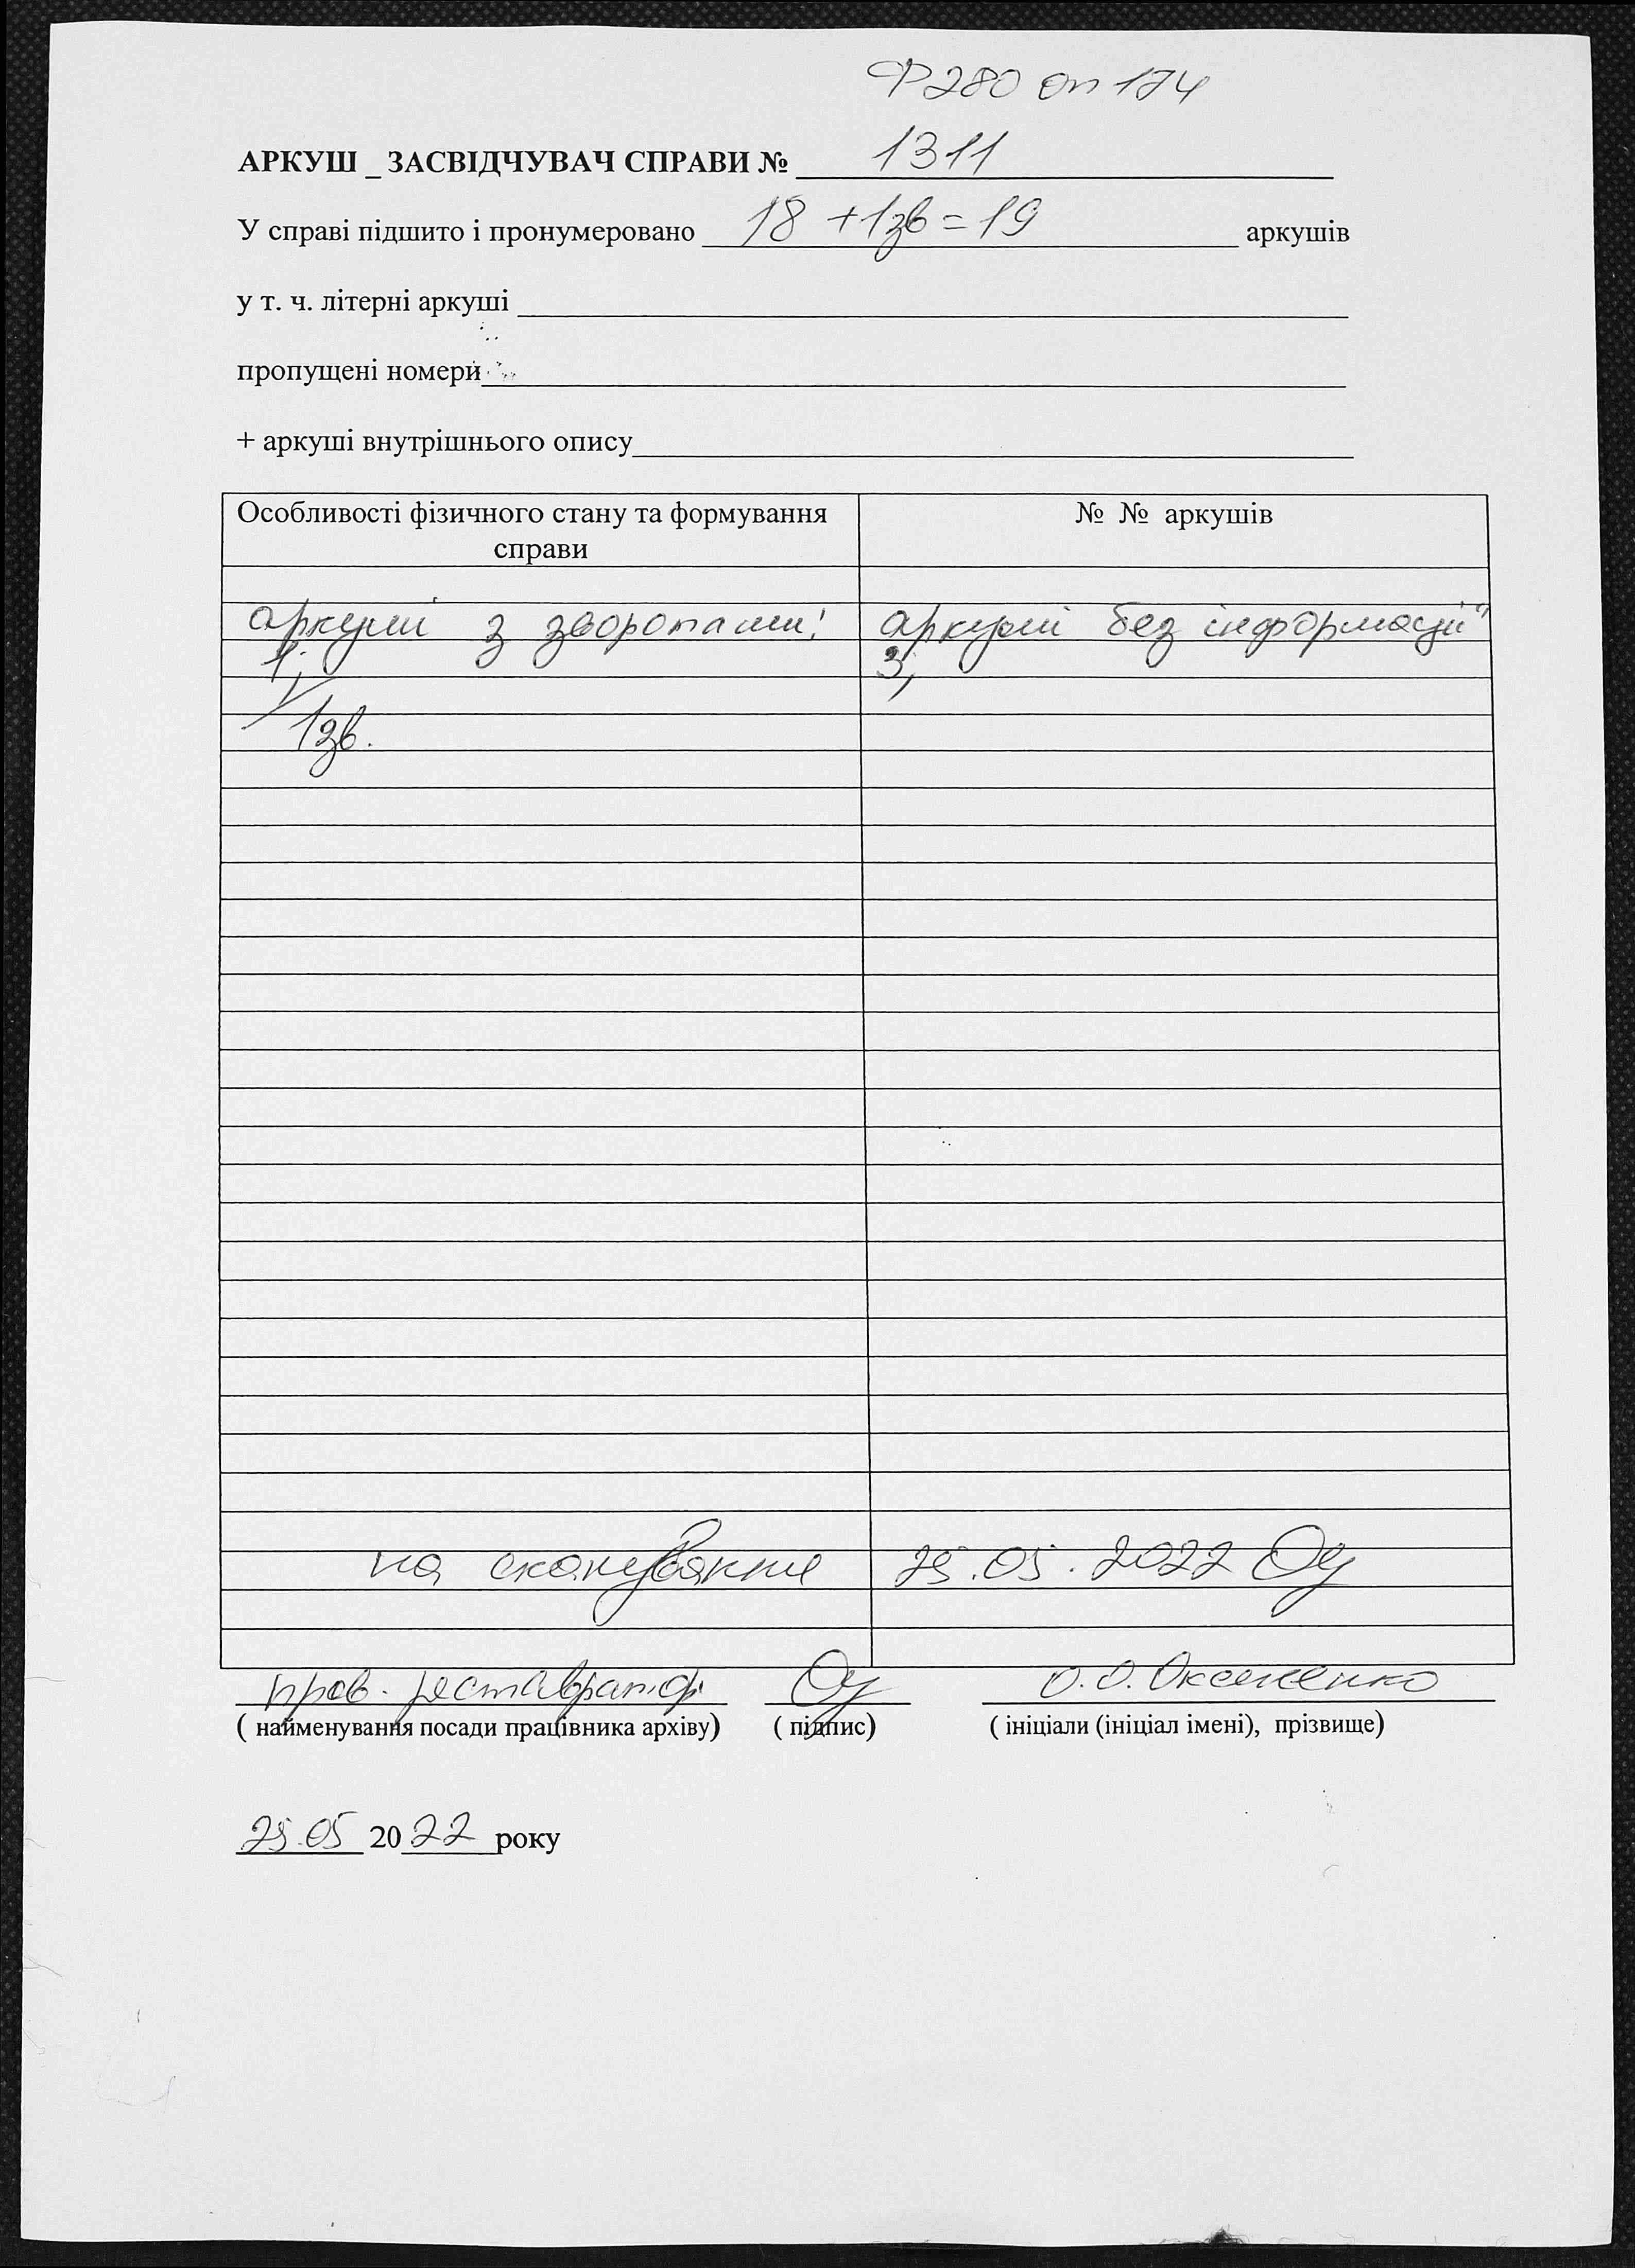 Ф 280 оп 174
АРКУШ _ ЗАСВІДЧУВАЧ СПРАВИ № 1311
У справі підшито і пронумеровано 18 + 1зв = 19 аркушів
у т. ч. літерні аркуші
пропущені номери
+ аркуші внутрішнього опису
Особливості фізичного стану та формування справи № № аркушів
аркуші з зворотами: аркуші без інформації
1; 3,
1зв.
на сканування 25.05.2022
пров. реставратор О.О. Оксененко
( найменування посади працівника архіву) ( підпис) ( ініціали (ініціал імені), прізвище)
25.05 2022 року